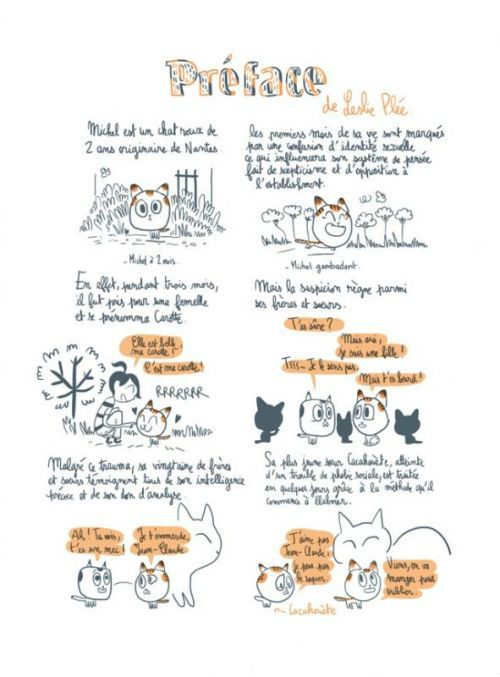 Préface
de Leslie Plée.
Michel est un chat roux de
2 ans originaire de Nantes.
- Michel à 2 mois.
les premiers mois de sa vie sont marqués
par une confusion d'identité sexuelle
ce qui influencera son système de pensée
fait de scepticisme et d'opposition à
l'establishment.
- Michel gambadant.
En effet, pendant trois mois,
il fut pris pour une femelle
et se prénomma Carotte.
Elle est belle
ma carotte!
C'est ma carotte!
RRRRRRR
Mais la suspicion règne parmi
ses frères et sœurs.
T'es sûre?
Mais oui,
je suis une fille!
Tsss.. Je le sens pas.
Mais t'es lourd!
Malgré ce trauma, sa vingtaine de frères
et sœurs témoignent tous de son intelligence
précoce et de son don d'analyse.
Ah! Tu vois,
t'es un mec!
Je t'emmerde,
Jean-Claude
Sa plus jeune sœur Cacahuète, atteinte
d'un trouble de phobie sociale, est traitée
en quelques jours grâce à la méthode qu'il
commence à élaborer.
J'aime pas
Jean-Claude,
je peux pas
le saquer.
Viens, on va
manger pour
oublier.
Cacahuète